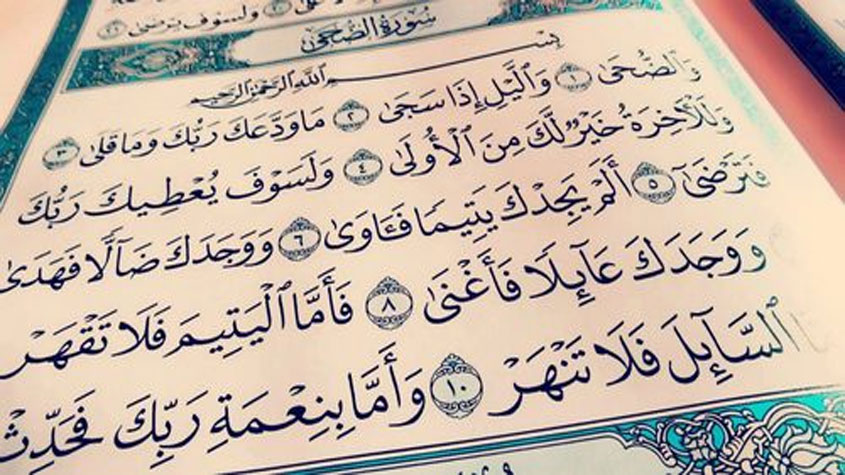 وَلَسَوْفَ يَرْضَىٰ ٢١
سُورَةُ الضُّحَىٰ
بِسْمِ ٱللَّهِ ٱلرَّحْمَٰنِ ٱلرَّحِيمِ
وَٱلضُّحَىٰ ١ وَٱلَّيْلِ إِذَا سَجَىٰ ٢ مَا وَدَّعَكَ رَبُّكَ وَمَا قَلَىٰ ٣
وَلَلْءَاخِرَةُ خَيْرٌ لَّكَ مِنَ ٱلْأُولَىٰ ٤ وَلَسَوْفَ يُعْطِيكَ رَبُّكَ
فَتَرْضَىٰٓ ٥ أَلَمْ يَجِدْكَ يَتِيمًا فَـَٔاوَىٰ ٦ وَوَجَدَكَ ضَآلًّا فَهَدَىٰ
وَوَجَدَكَ عَآئِلًا فَأَغْنَىٰ ٨ فَأَمَّا ٱلْيَتِيمَ فَلَا تَقْهَرْ
ٱلسَّآئِلَ فَلَا تَنْهَرْ ١٠ وَأَمَّا بِنِعْمَةِ رَبِّكَ فَحَدِّثْ